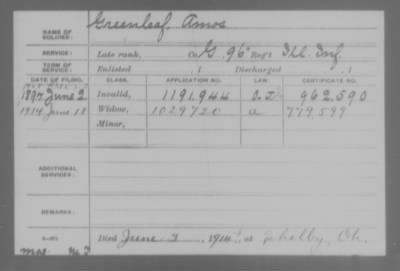 NAME OF SOLDIER: Greenleaf, Amos
SERVICE: Late rank, Co. G, 96" Reg't Ill. Inf.
TERM OF SERVICE: Enlisted , 1 Discharged , 1
DATE OF FILING. CLASS. APPLICATION NO. LAW. CERTIFICATE NO.
1897 June 2 Invalid, 1191.944 962.590
1914 June 18 Widow, 1029720 a 779599
Minor,
ADDITIONAL SERVICES:
REMARKS:
Died June 3, 1914, at Shelby, Oh.